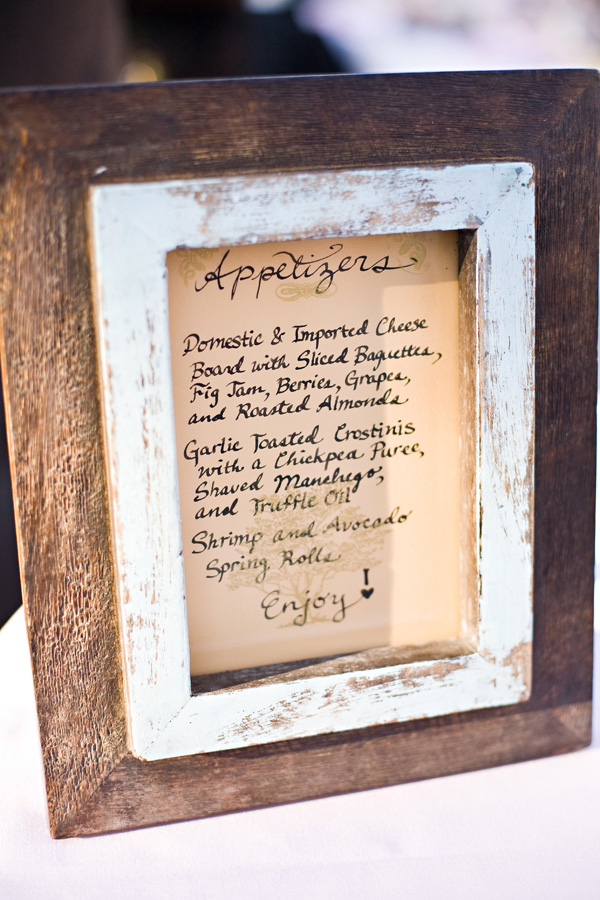 Appetizers
Domestic & Imported Cheese
Board with Sliced Baguettes,
Fig Jam, Berries, Grapes,
and Roasted Almonds
Garlic Toasted Crostinis
with a Chickpea Puree,
Shaved Manchego,
and Truffle Oil
Shrimp and Avocado
Spring Rolls
Enjoy!